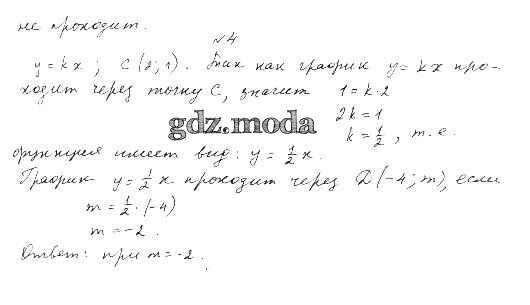 не проходит.
№4
y = kx; C(2; 1). Так как график y = kx про-
ходит через точку C, значит 1 = k·2
2k = 1
gdz.moda
k = 1/2, т.е.
функция имеет вид: y = 1/2 x.
График y = 1/2 x проходит через D(-4; m), если
m = 1/2·(-4)
m = -2.
Ответ: при m = -2.